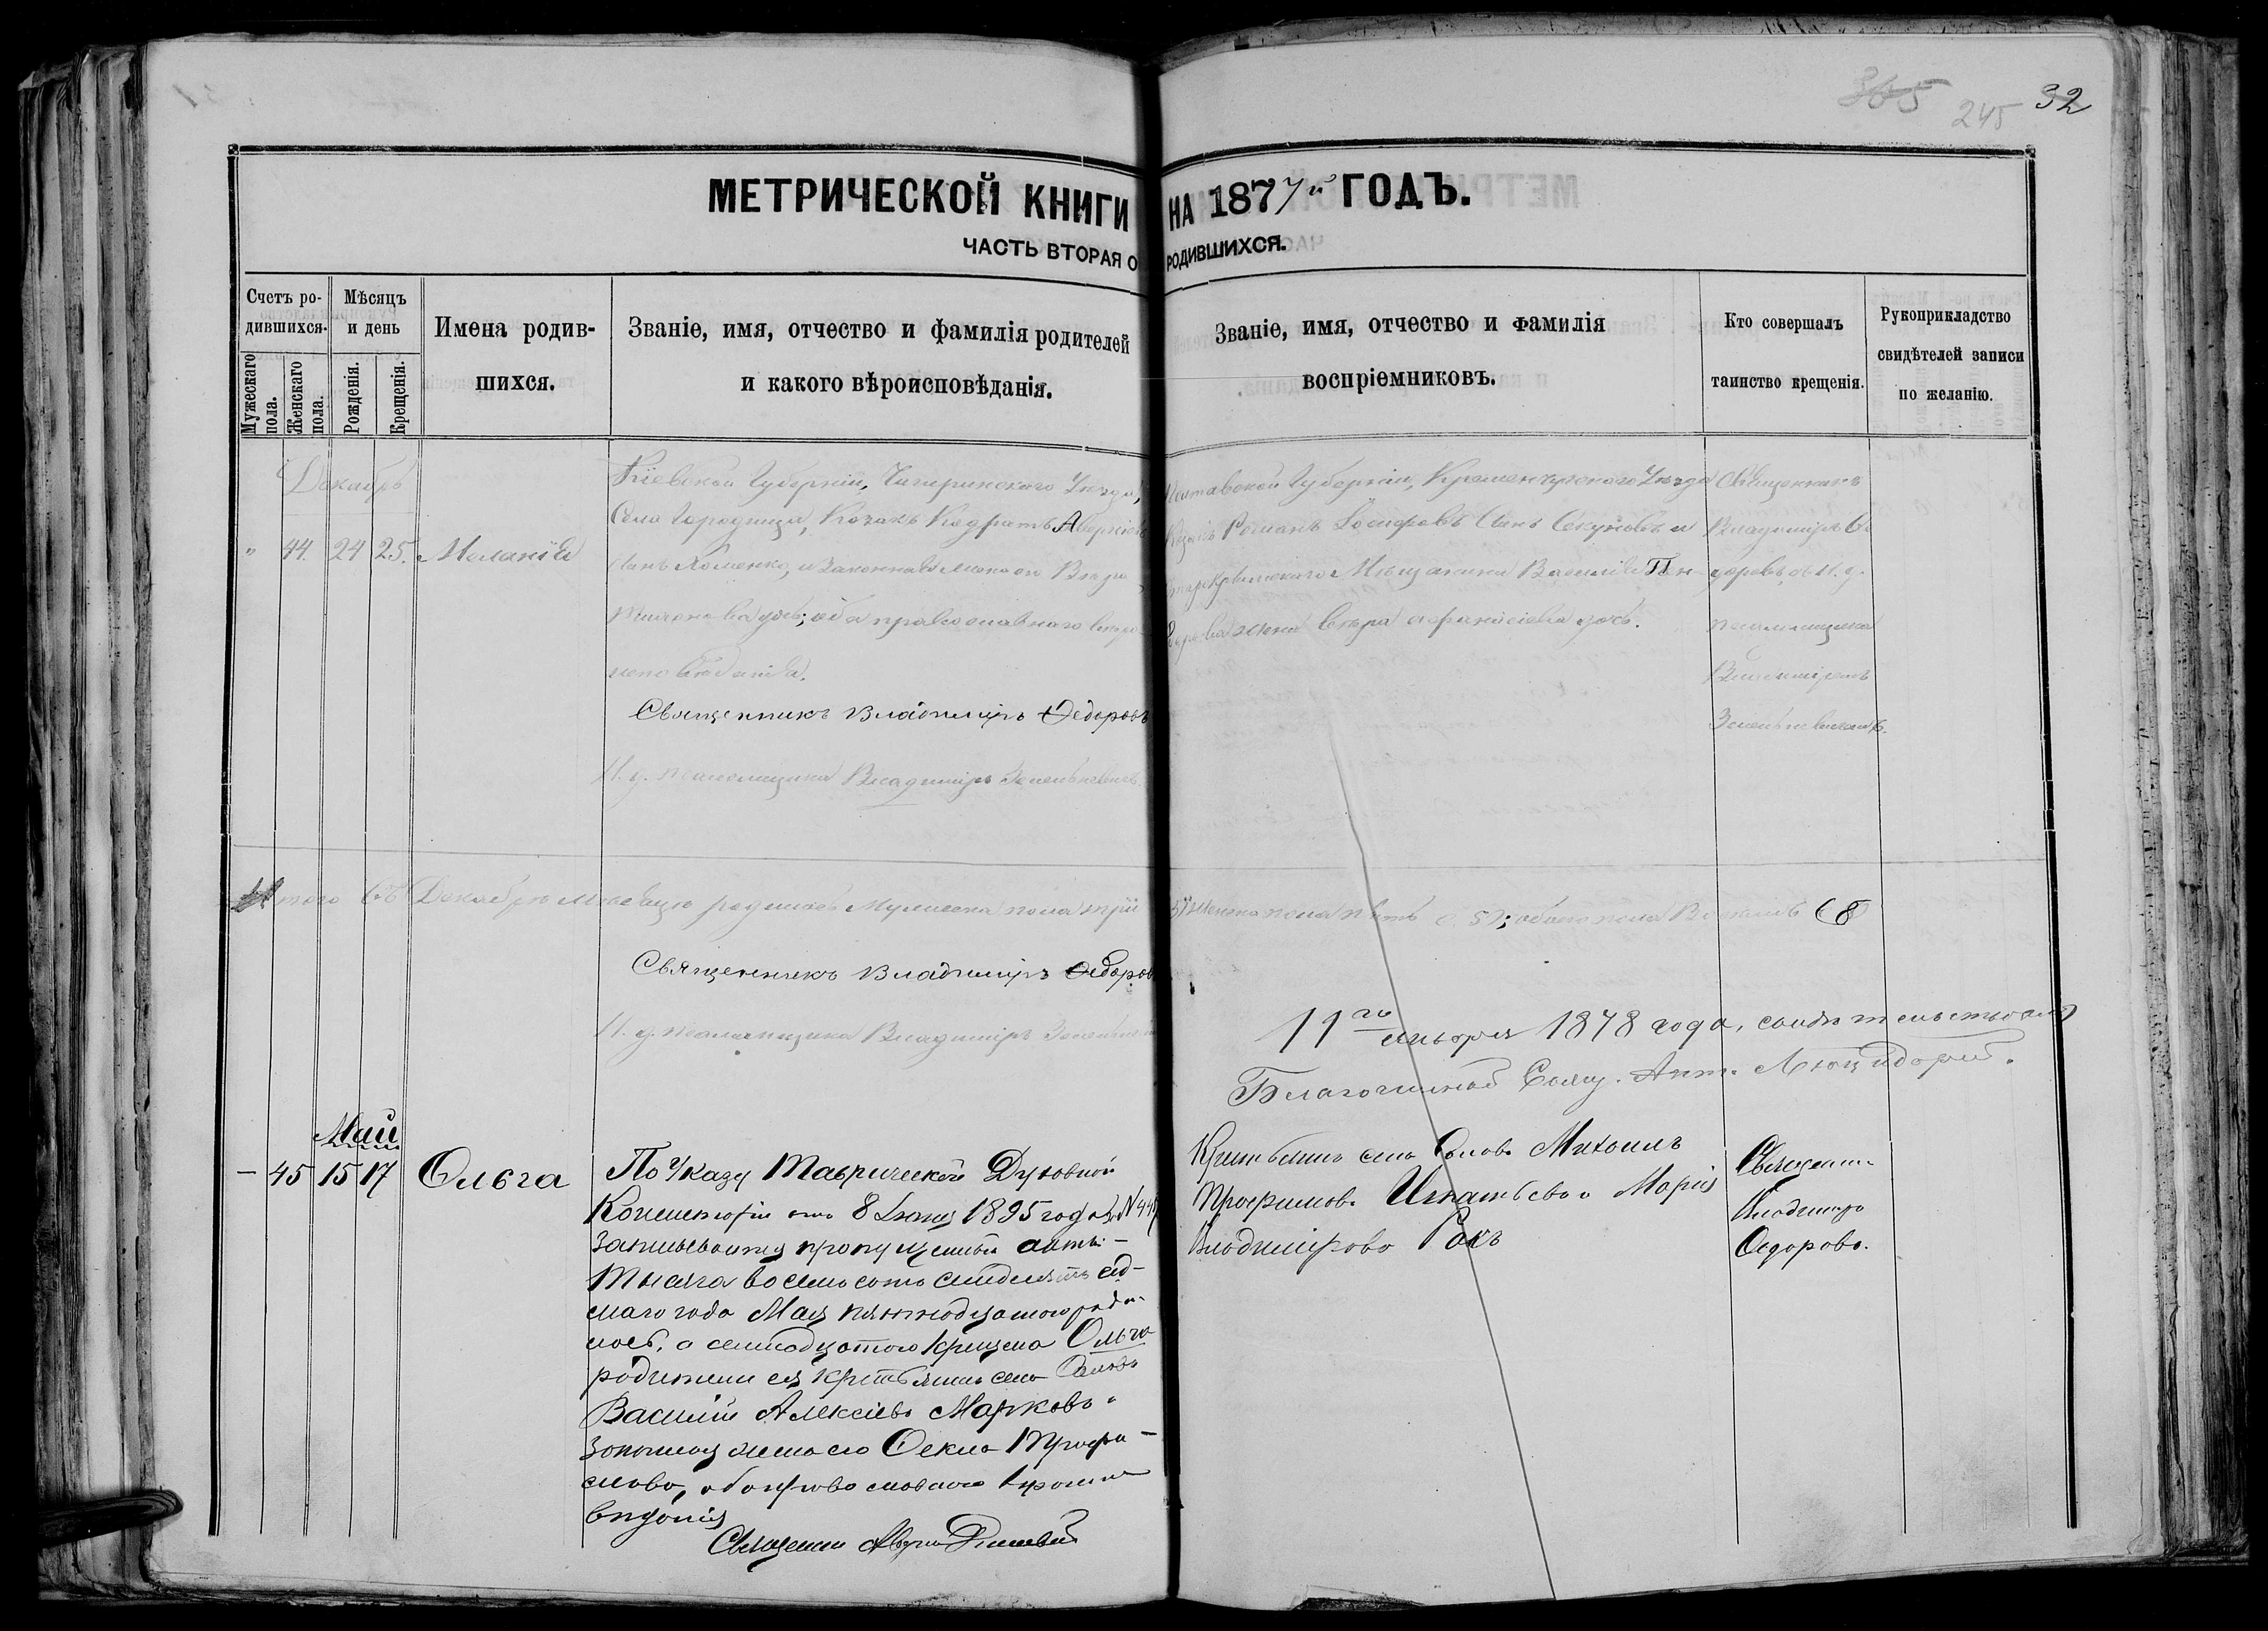 365 245 32
МЕТРИЧЕСКОЙ КНИГИ НА 1877й ГОДЪ.
ЧАСТЬ ВТОРАЯ О РОДИВШИХСЯ.
Счетъ ро-
дившихся.
Мужескаго пола.
Женскаго пола.
Мѣсяцъ
и день
Рожденія.
Крещенія.
Имена родив-
шихся.
Званіе, имя, отчество и фамилія родителей
и какого вѣроисповѣданія.
Званіе, имя, отчество и фамилія
воспріемниковъ.
Кто совершалъ
таинство крещенія.
Рукоприкладство
свидѣтелей записи
по желанію.
Декабрь
" 44. 24 25. Меланія
Кіевской Губерніи, Чигиринскаго Уѣзда,
Села Козакъ
Сынъ Хоменко, и законная жена его Вѣра
дочь; оба православнаго вѣро-
исповѣданія.
Священникъ Владиміръ Ѳедоровъ
И. д. псаломщика Владиміръ
Полтавской Губерніи, Кременчугскаго Уѣзда
Козакъ Романъ Іосифовъ Сынъ и
Мѣщанина Василія
жена Вѣра Афанасіева дочь.
Священникъ
Владиміръ Ѳе-
доровъ, съ И. д.
псаломщика
Владиміромъ
Итого въ Декабрѣ мѣсяцѣ родилось Мужеска пола три 3; женска пола пять 5; обоего пола Восемь 8
Священникъ Владиміръ Ѳедоровъ
И. д. псаломщика Владиміръ
11го января 1878 года, свидѣтельствовалъ
Благочинный Свящ. Ант.
Май
— 45 15 17 Ольга
По Указу Таврической Духовной
Консисторіи отъ 8 Іюня 1895 года
записывается пропущенный актъ:
Тысяча восемьсотъ семьдесятъ седь-
маго года Мая пятнадцатаго роди-
лась, а семнадцатаго крещена Ольга
родители ея крестьянинъ села
Василій Алексѣевъ Марковъ и
законная жена его Ѳекла Трофи-
мова, оба православнаго вѣроиспо-
вѣданія
Священникъ
Крестьянинъ села Михаилъ
Трофимовъ Игнатьевъ и Марія
Владимірова
Священникъ
Владиміръ
Ѳедоровъ.